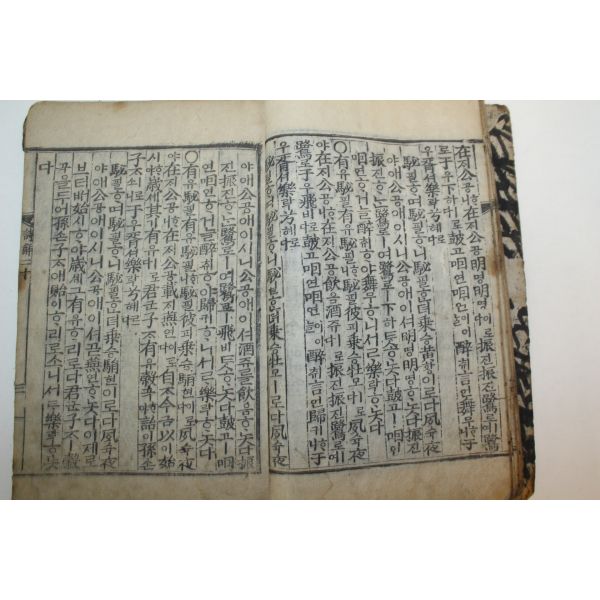 在ᄌᆡ公공ᄒᆞ니在ᄌᆡ公공明명明명이로다振진振진鷺로ㅣ여鷺
로于우下하ㅣ로다鼓고咽연咽연이어ᄂᆞᆯ醉ᄎᆔ言언舞무ᄒᆞ니于
우胥셔樂락兮혜로다
駜필ᄒᆞ며駜필ᄒᆞ니駜필ᄒᆞᆫ뎌乘승黃황이로다夙슉夜
야애公공애이시니公공애이셔明명明명ᄒᆞ놋다振진
振진ᄒᆞᄂᆞᆫ鷺로ㅣ여鷺로ㅣ下하ᄐᆞᆺᄒᆞ놋다鼓고ㅣ咽연
咽연ᄒᆞ거ᄂᆞᆯ醉ᄎᆔᄒᆞ야舞무ᄒᆞ니서르樂락ᄒᆞ놋다
○有유駜필有유駜필ᄒᆞ니駜필彼피乘승牡모ㅣ로다夙슉夜
야在ᄌᆡ公공ᄒᆞ니在ᄌᆡ公공飮음酒쥬ㅣ로다振진振진鷺로ㅣ여
鷺로于우飛비로다鼓고咽연咽연이어ᄂᆞᆯ醉ᄎᆔ言언歸귀ᄒᆞ니于
우胥셔樂락兮혜로다
駜필ᄒᆞ며駜필ᄒᆞ니駜필ᄒᆞᆫ뎌乘승牡모ㅣ로다夙슉夜
야애公공애이시니公공애이셔酒쥬를飮음ᄒᆞ놋다振
진振진ᄒᆞᄂᆞᆫ鷺로ㅣ여鷺로ㅣ飛비ᄐᆞᆺᄒᆞ놋다鼓고ㅣ咽
연咽연ᄒᆞ거ᄂᆞᆯ醉ᄎᆔᄒᆞ야歸귀ᄒᆞ니서르樂락ᄒᆞ놋다
○有유駜필有유駜필ᄒᆞ니駜필彼피乘승駽현이로다夙슉夜
야在ᄌᆡ公공ᄒᆞ니在ᄌᆡ公공載ᄌᆡ燕연이로다自ᄌᆞ今금以이始
시ᄒᆞ야歲셰其기有유ㅣ로다君군子ᄌᆞ有유穀곡ᄒᆞ야詒이孫손
子ᄌᆞㅣ로소니于우胥셔樂락兮혜로다
駜필ᄒᆞ며駜필ᄒᆞ니駜필ᄒᆞᆫ뎌乘승駽현이로다夙슉夜
야애公공애이시니公공애이셔곧燕연ᄒᆞ놋다이제로
브터始시ᄒᆞ야歲셰그有유ᄒᆞ리로다君군子ᄌᆞㅣ穀
곡을두어孫손子ᄌᆞ애貽이ᄒᆞ리로소니서르樂락ᄒᆞ놋
다
詩解 十